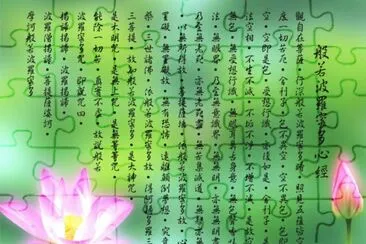 般若波羅蜜多心經
觀自在菩薩・行深般若波羅蜜多時・照見五蘊皆空
度一切苦厄・舍利子・色不異空・空不異色・色即
空・空即是色・受想行識・亦復如是・舍利子・是
空相・不生不滅・不垢不淨・不增不減・是故
無色・無受想行識・無眼耳鼻舌身意・無色聲香
法・無眼界・乃至無意識界・無無明・亦無
乃至無老死・亦無老死盡・無苦集滅道・無
以無所得故・菩提薩埵・依般若波羅蜜多
罣礙・無罣礙故・無有恐怖・遠離顛倒夢想・究竟
槃・三世諸佛・依般若波羅蜜多故・得阿耨多羅三
三菩提・故知般若波羅蜜多・是大神咒
是大明咒・是無上咒・是無等等咒
能除一切苦・真實不虛・故說般若
波羅蜜多咒・即說咒曰
揭諦揭諦・波羅揭諦
波羅僧揭諦・菩提薩婆訶
摩訶般若波羅蜜多